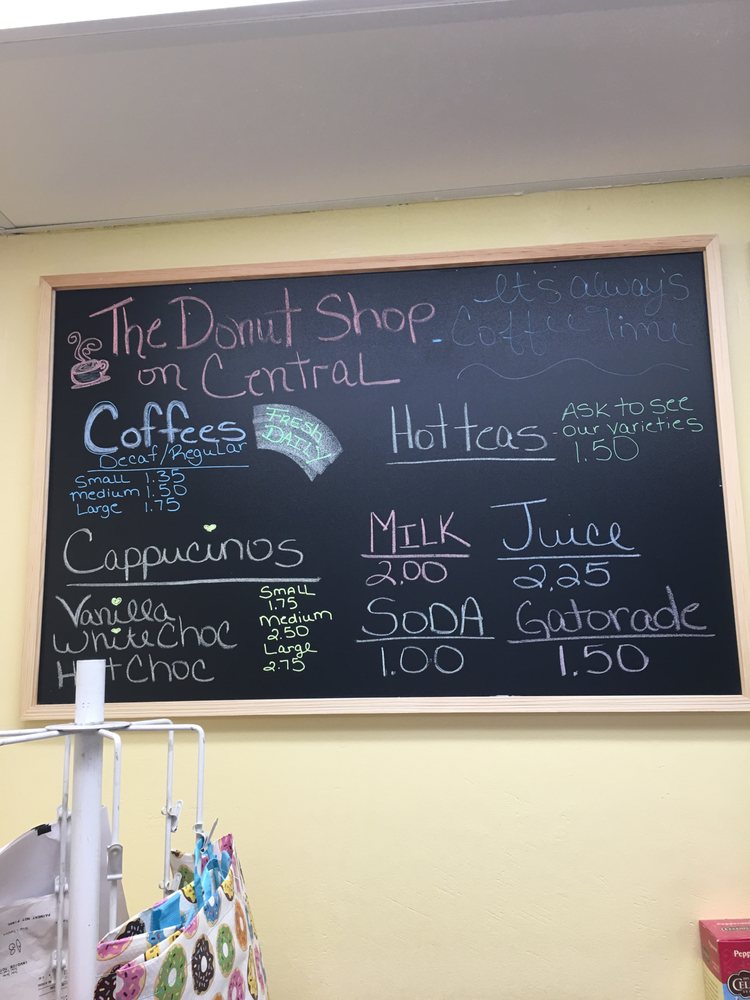 The Donut Shop
on Central
It's always
Coffee Time
Coffees
Decaf/Regular
Small 1.35
medium 1.50
Large 1.75
FRESH
DAILY
Hot teas
ASK to see
our varieties
1.50
Cappucinos
Vanilla
White Choc
Hot Choc
Small
1.75
Medium
2.50
Large
2.75
MILK
2.00
Juice
2.25
SODA
1.00
Gatorade
1.50